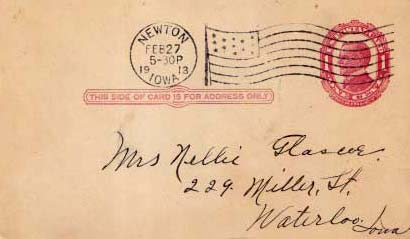 NEWTON
FEB 27
5-30P
1913
IOWA
THIS SIDE OF CARD IS FOR ADDRESS ONLY
Mrs Nellie Glascer.
229. Miller, St.
Waterloo. Iowa